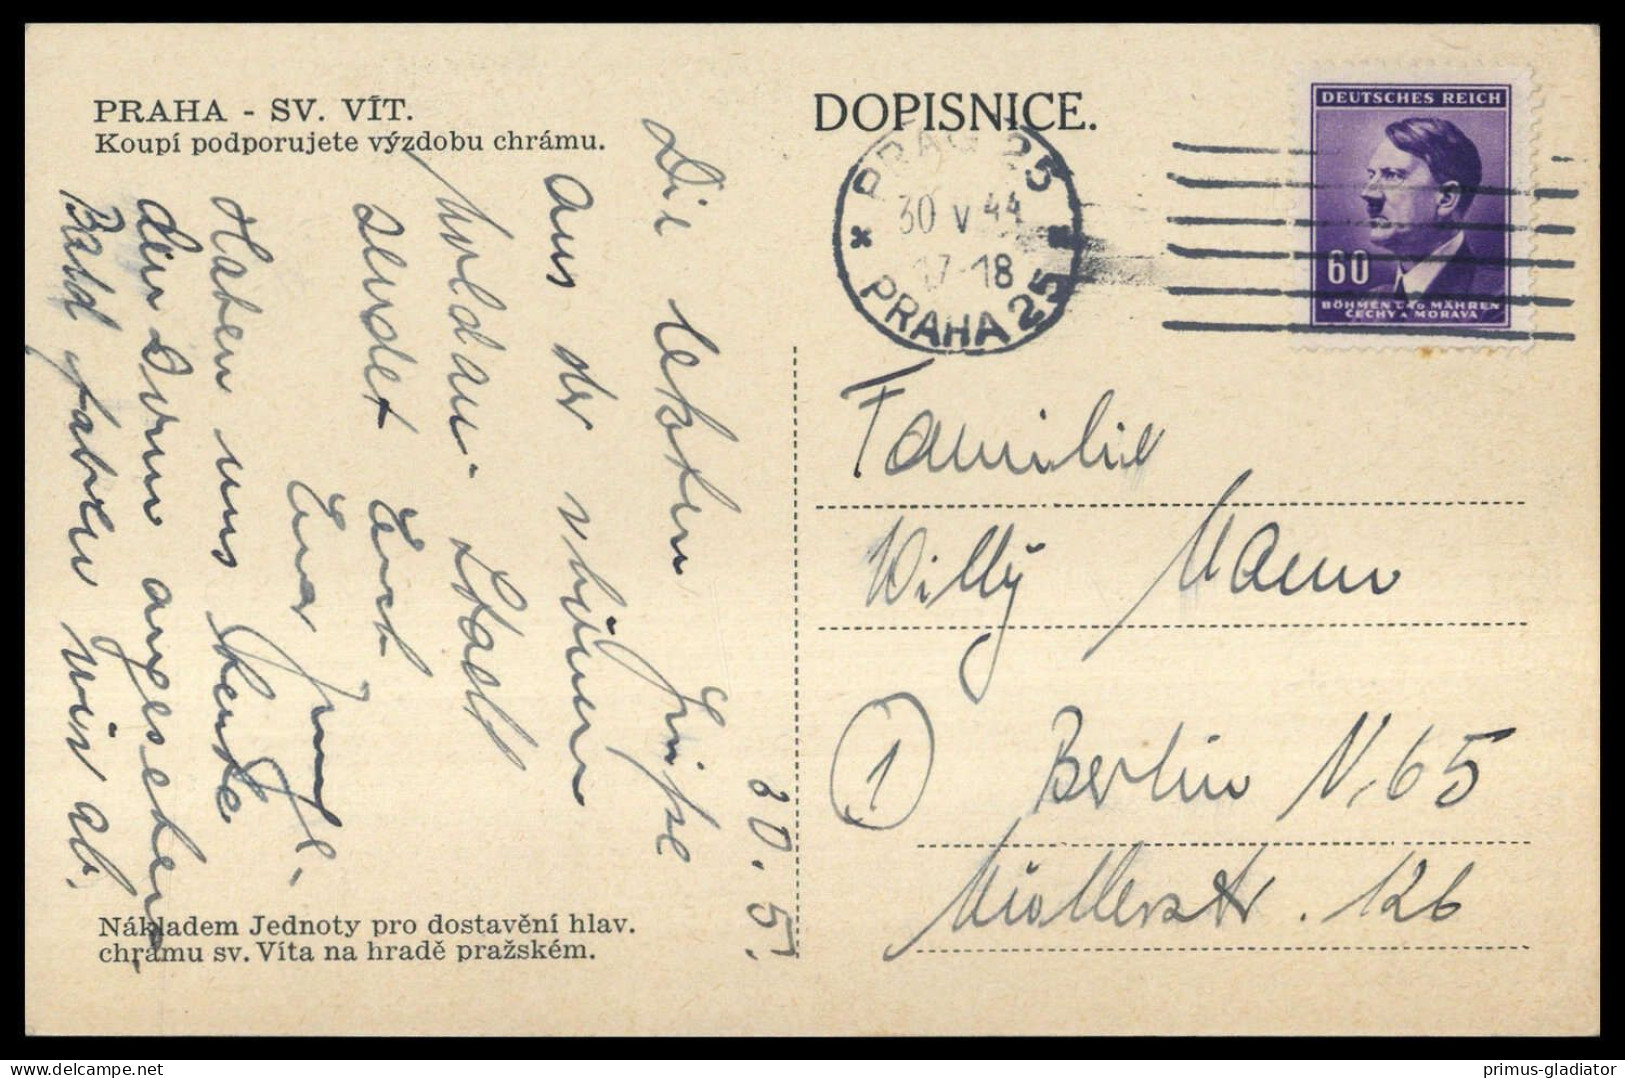 PRAHA - SV. VÍT.
Koupí podporujete výzdobu chrámu.
DOPISNICE.
PRAG 25
30 V 44
17-18
PRAHA 25
DEUTSCHES REICH
60
BÖHMEN UND MÄHREN
ČECHY A MORAVA
30. 5.
Die letzten Grüße
aus der schönen
Moldau-Stadt
sendet Euch
Euer
Haben uns heute
den Dom angesehen.
Bald fahren wir ab.
Familie
Willy Mann
1
Berlin N. 65
Müllerstr. 126
Nákladem Jednoty pro dostavění hlav.
chrámu sv. Víta na hradě pražském.
primus-gladiator
delcampe.net